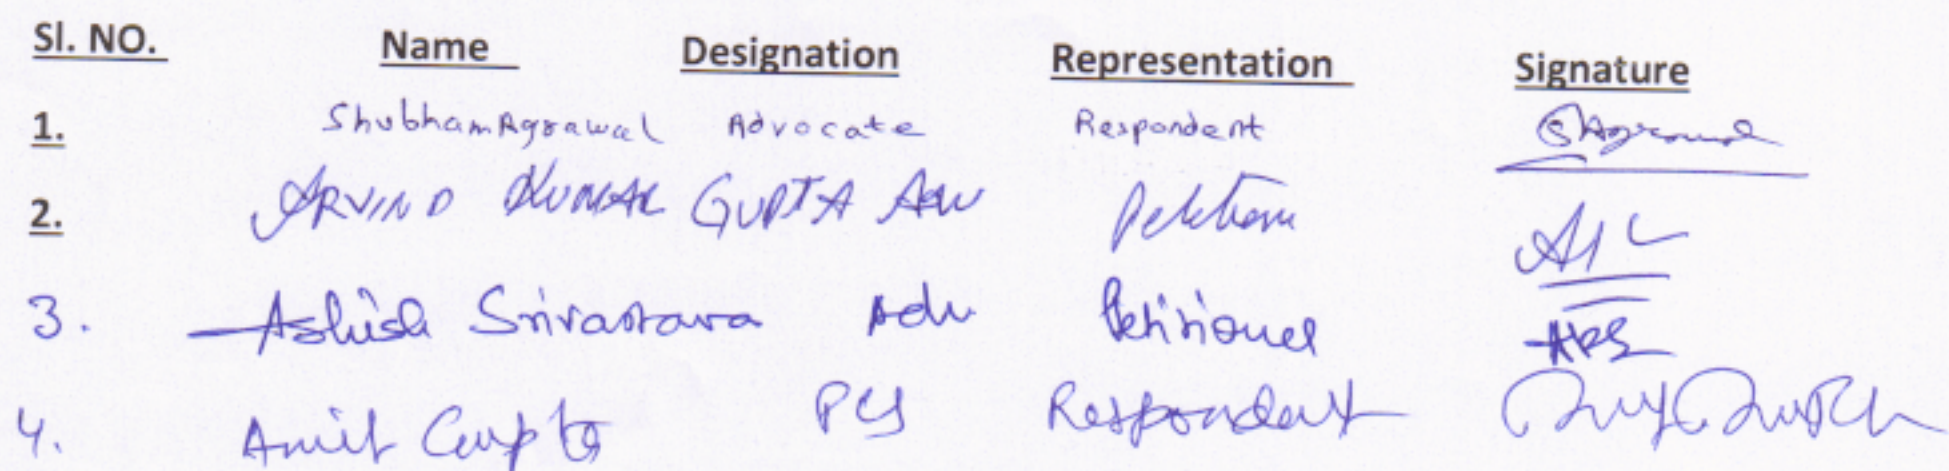 Sl. NO. Name Designation Representation Signature
1. Shubham Agrawal Advocate Respondent SAgrawal
2. ARVIND KUMAR GUPTA Adv Petitioner
3. Ashish Srivastava Adv Petitioner
4. Amit Gupta PCS Respondent